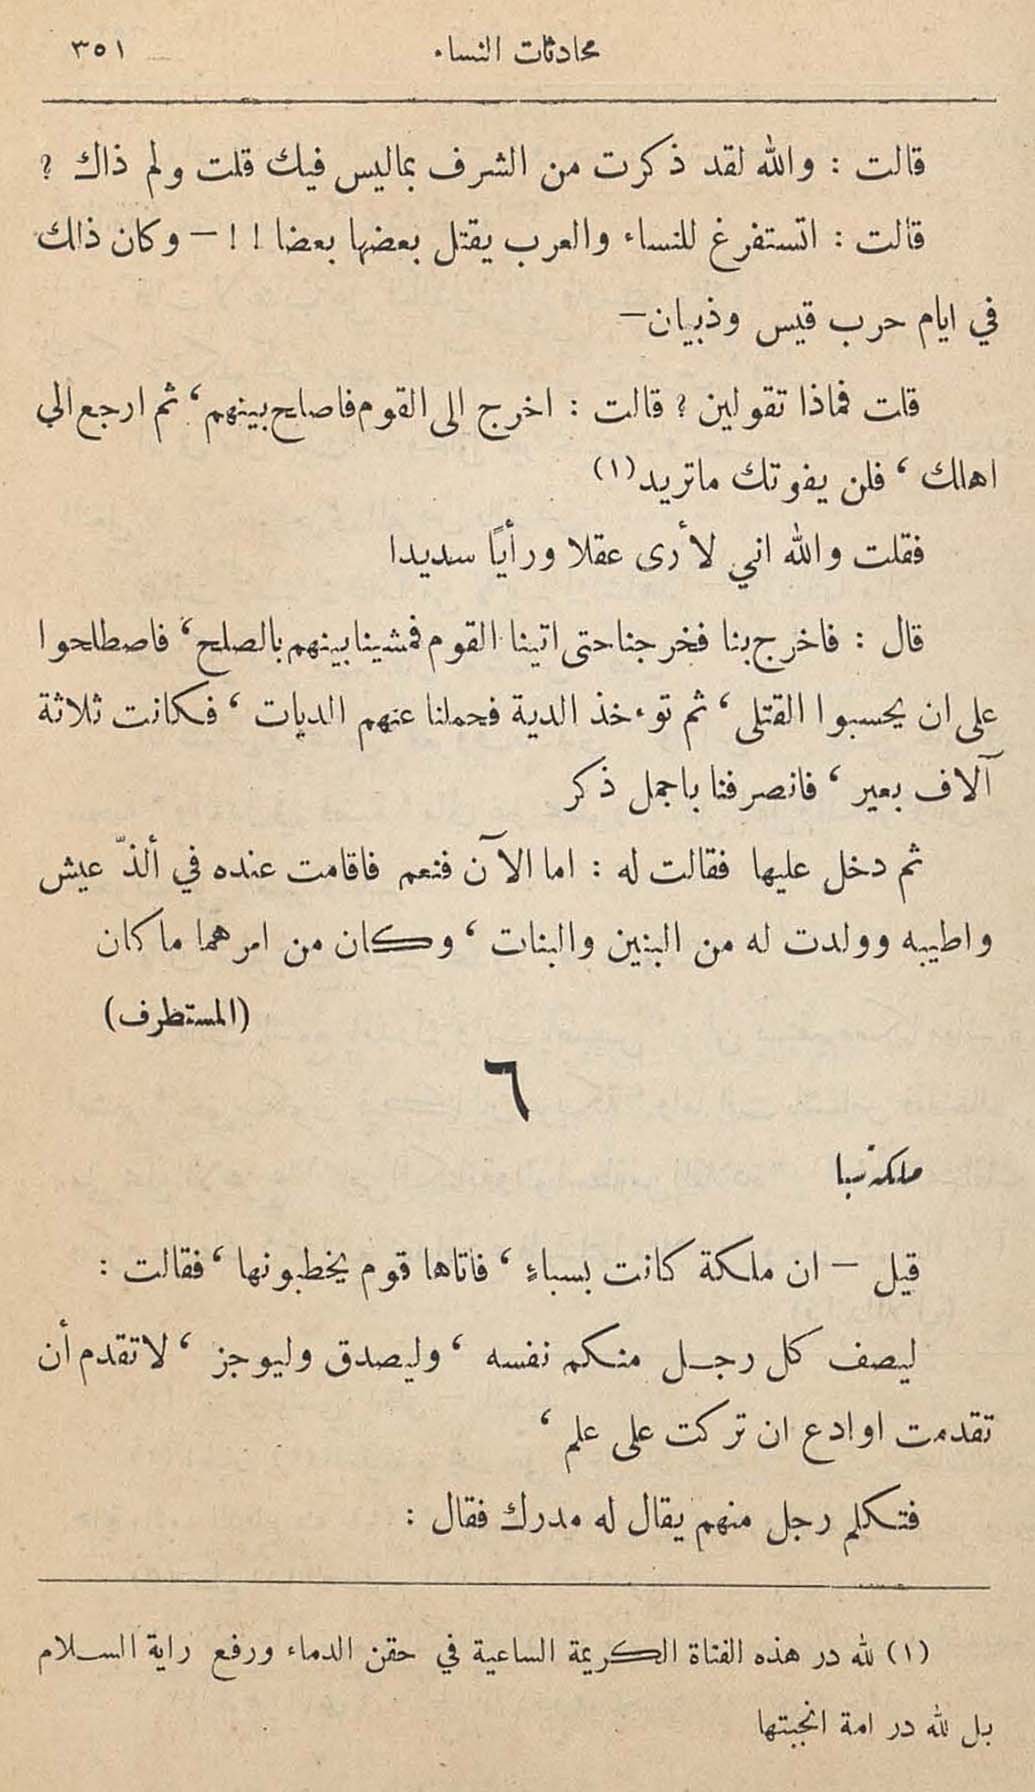 محادثات النساء ٣٥١
قالت : والله لقد ذكرت من الشرف بماليس فيك قلت ولم ذاك ؟
قالت : اتستفرغ للنساء والعرب يقتل بعضها بعضا !! — وكان ذلك
في ايام حرب قيس وذبيان—
قلت فماذا تقولين ؟ قالت : اخرج الى القوم فاصلح بينهم ، ثم ارجع الي
اهلك ، فلن يفوتك ماتريد (١)
فقلت والله اني لأرى عقلا ورأيًا سديدا
قال : فاخرج بنا فخرجنا حتى اتينا القوم فمشينا بينهم بالصلح ، فاصطلحوا
على ان يحسبوا القتلى ، ثم توءخذ الدية فحملنا عنهم الديات ، فكانت ثلاثة
آلاف بعير ، فانصرفنا باجمل ذكر
ثم دخل عليها فقالت له : اما الآن فنعم فاقامت عنده في ألذّ عيش
واطيبه وولدت له من البنين والبنات ، وكان من امرهما ما كان
(المستطرف)
٦
ملكة سبا
قيل — ان ملكة كانت بسباءٍ ، فاتاها قوم يخطبونها ، فقالت :
ليصف كل رجل منكم نفسه ، وليصدق وليوجز ، لاتقدم أن
تقدمت اوادع ان تركت على علم ،
فتكلم رجل منهم يقال له مدرك فقال :
(١) لله در هذه الفتاة الكريمة الساعية في حقن الدماء ورفع راية السلام
بل لله در امة انجبتها